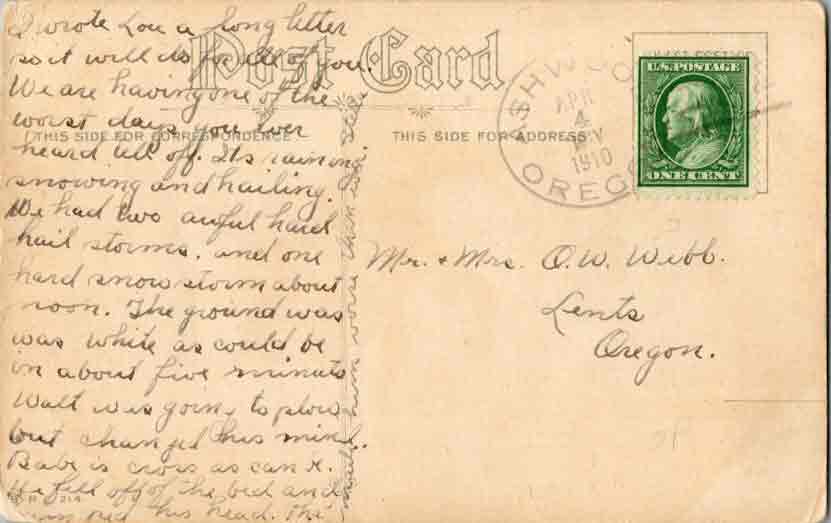 I wrote Lou a long letter
so it will do for all of you.
We are having one of the
worst days you ever
heard tell of. Its raining
snowing and hailing.
We had two awful hard
hail storms, and one
hard snow storm about
noon. The ground was
was white as could be
in about five minuts
Walt was going to plow
but changed his mind.
Babe is cross as can be.
He fell off of the bed and
his head. The
made him worse than
Post Card
THIS SIDE FOR CORRESPONDENCE
THIS SIDE FOR ADDRESS
ASHWOOD
APR
4
1910
OREGON
U.S. POSTAGE
ONE CENT
Mr. & Mrs. O.W. Webb.
Lents
Oregon.
214